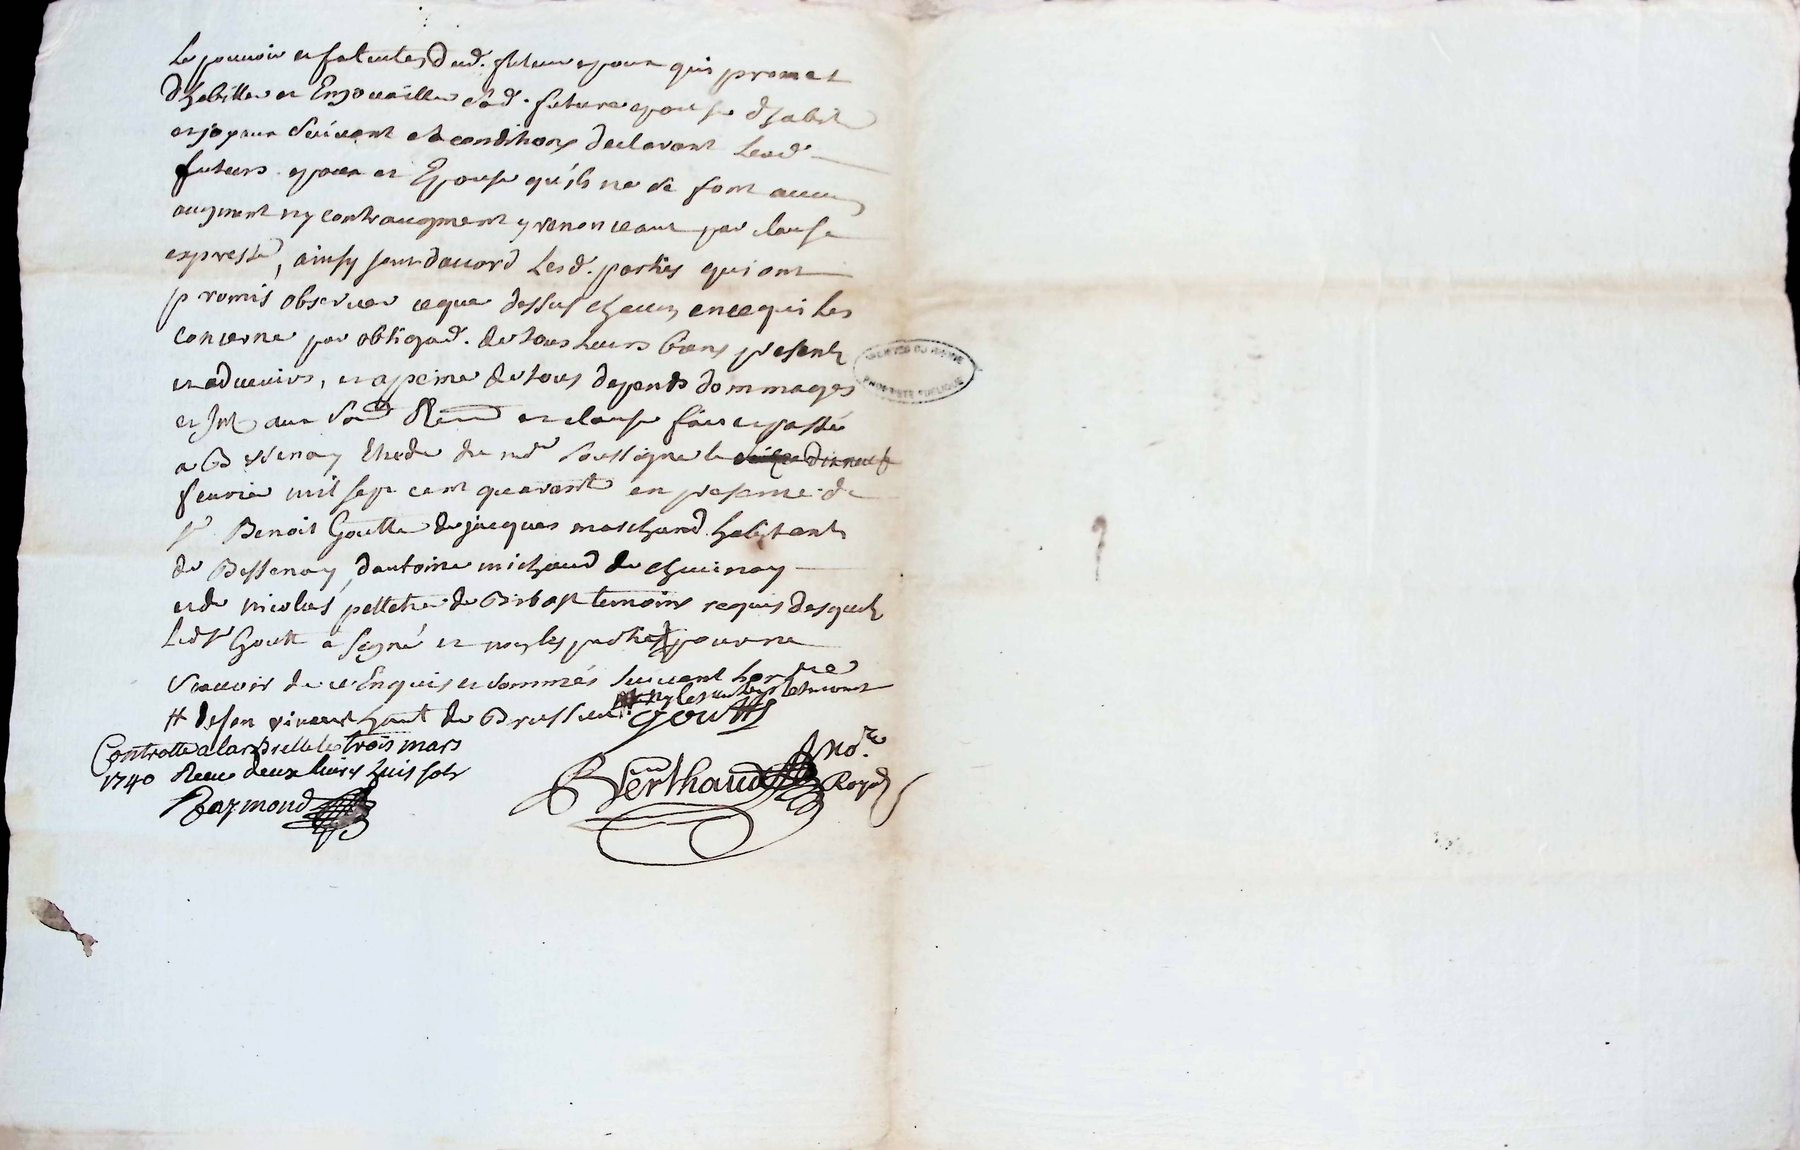 Le pouvoir et facultes dud. futur epoux qui promet
d'habiller et Enjoualler lad. future epouse d'habits
et joyaux suivant sa condition declarant lesd.
futurs epoux et Epouse qu'ils ne se font aucun
augment ny contraugment y renonceant par clause
expresse, ainsy sont d'accord Lesd. parties qui ont
promis observer ce que dessus chacun en ce qui les
concerne par obligaõn. de tous Leurs biens presents
et advenirs, et a peine de tous depends dommages
et Int. aux et clause fait et passé
a Bessenay Etude du no.re soussigné le dixneuf
fevrier mil sept cent quarante en presence de
sr Benoit Goutte de jacques marchand habitant
de Bessenay, d'antoine michaud de chevinay
et de nicolas pelletier de Bibost temoins requis desquels
Led. sr Goutte a signé et non les parties pour ne
scavoir de ce Enquis et sommés suivant l'ord.re
# de feu vincent haut de Brussieu # ny les autres temoins
Goutte
Controllé a larbrelle le trois mars
1740 Receu deux livres huis sols
Raymond
Berthaud no.re
Royal
ARCHIVES DU RHONE
PROPRIETE PUBLIQUE